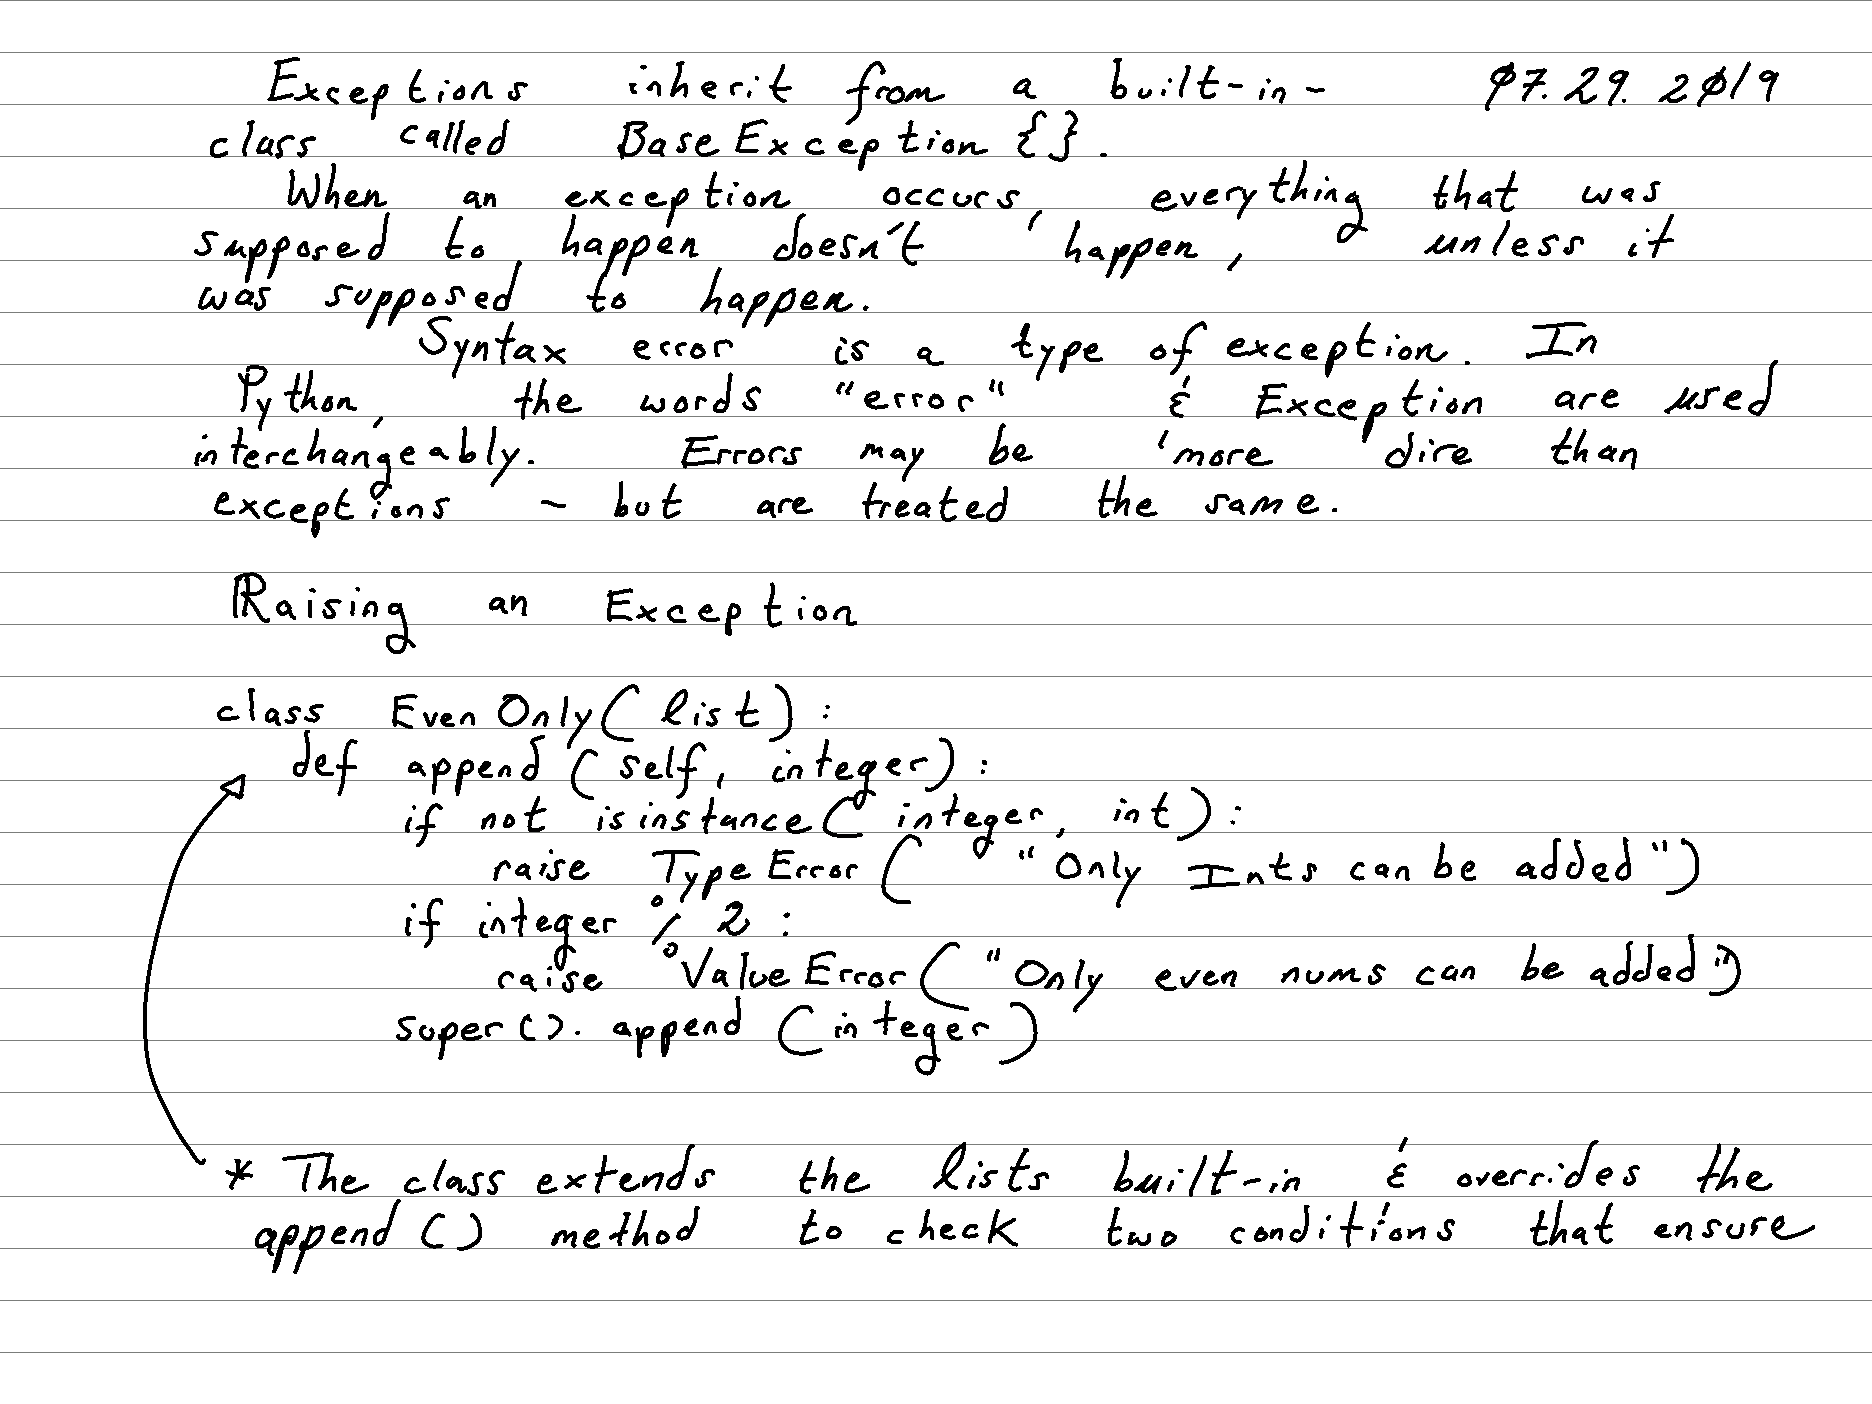 Exceptions inherit from a built-in- 07.29.2019
class called BaseException {}.
When an exception occurs, everything that was
supposed to happen doesn't happen, unless it
was supposed to happen.
Syntax error is a type of exception. In
Python, the words "error" & Exception are used
interchangeably. Errors may be more dire than
exceptions - but are treated the same.
Raising an Exception
class EvenOnly(list):
def append(self, integer):
if not isinstance(integer, int):
raise TypeError("Only Ints can be added")
if integer % 2:
raise ValueError("Only even nums can be added")
super().append(integer)
* The class extends the lists built-in & overrides the
append() method to check two conditions that ensure